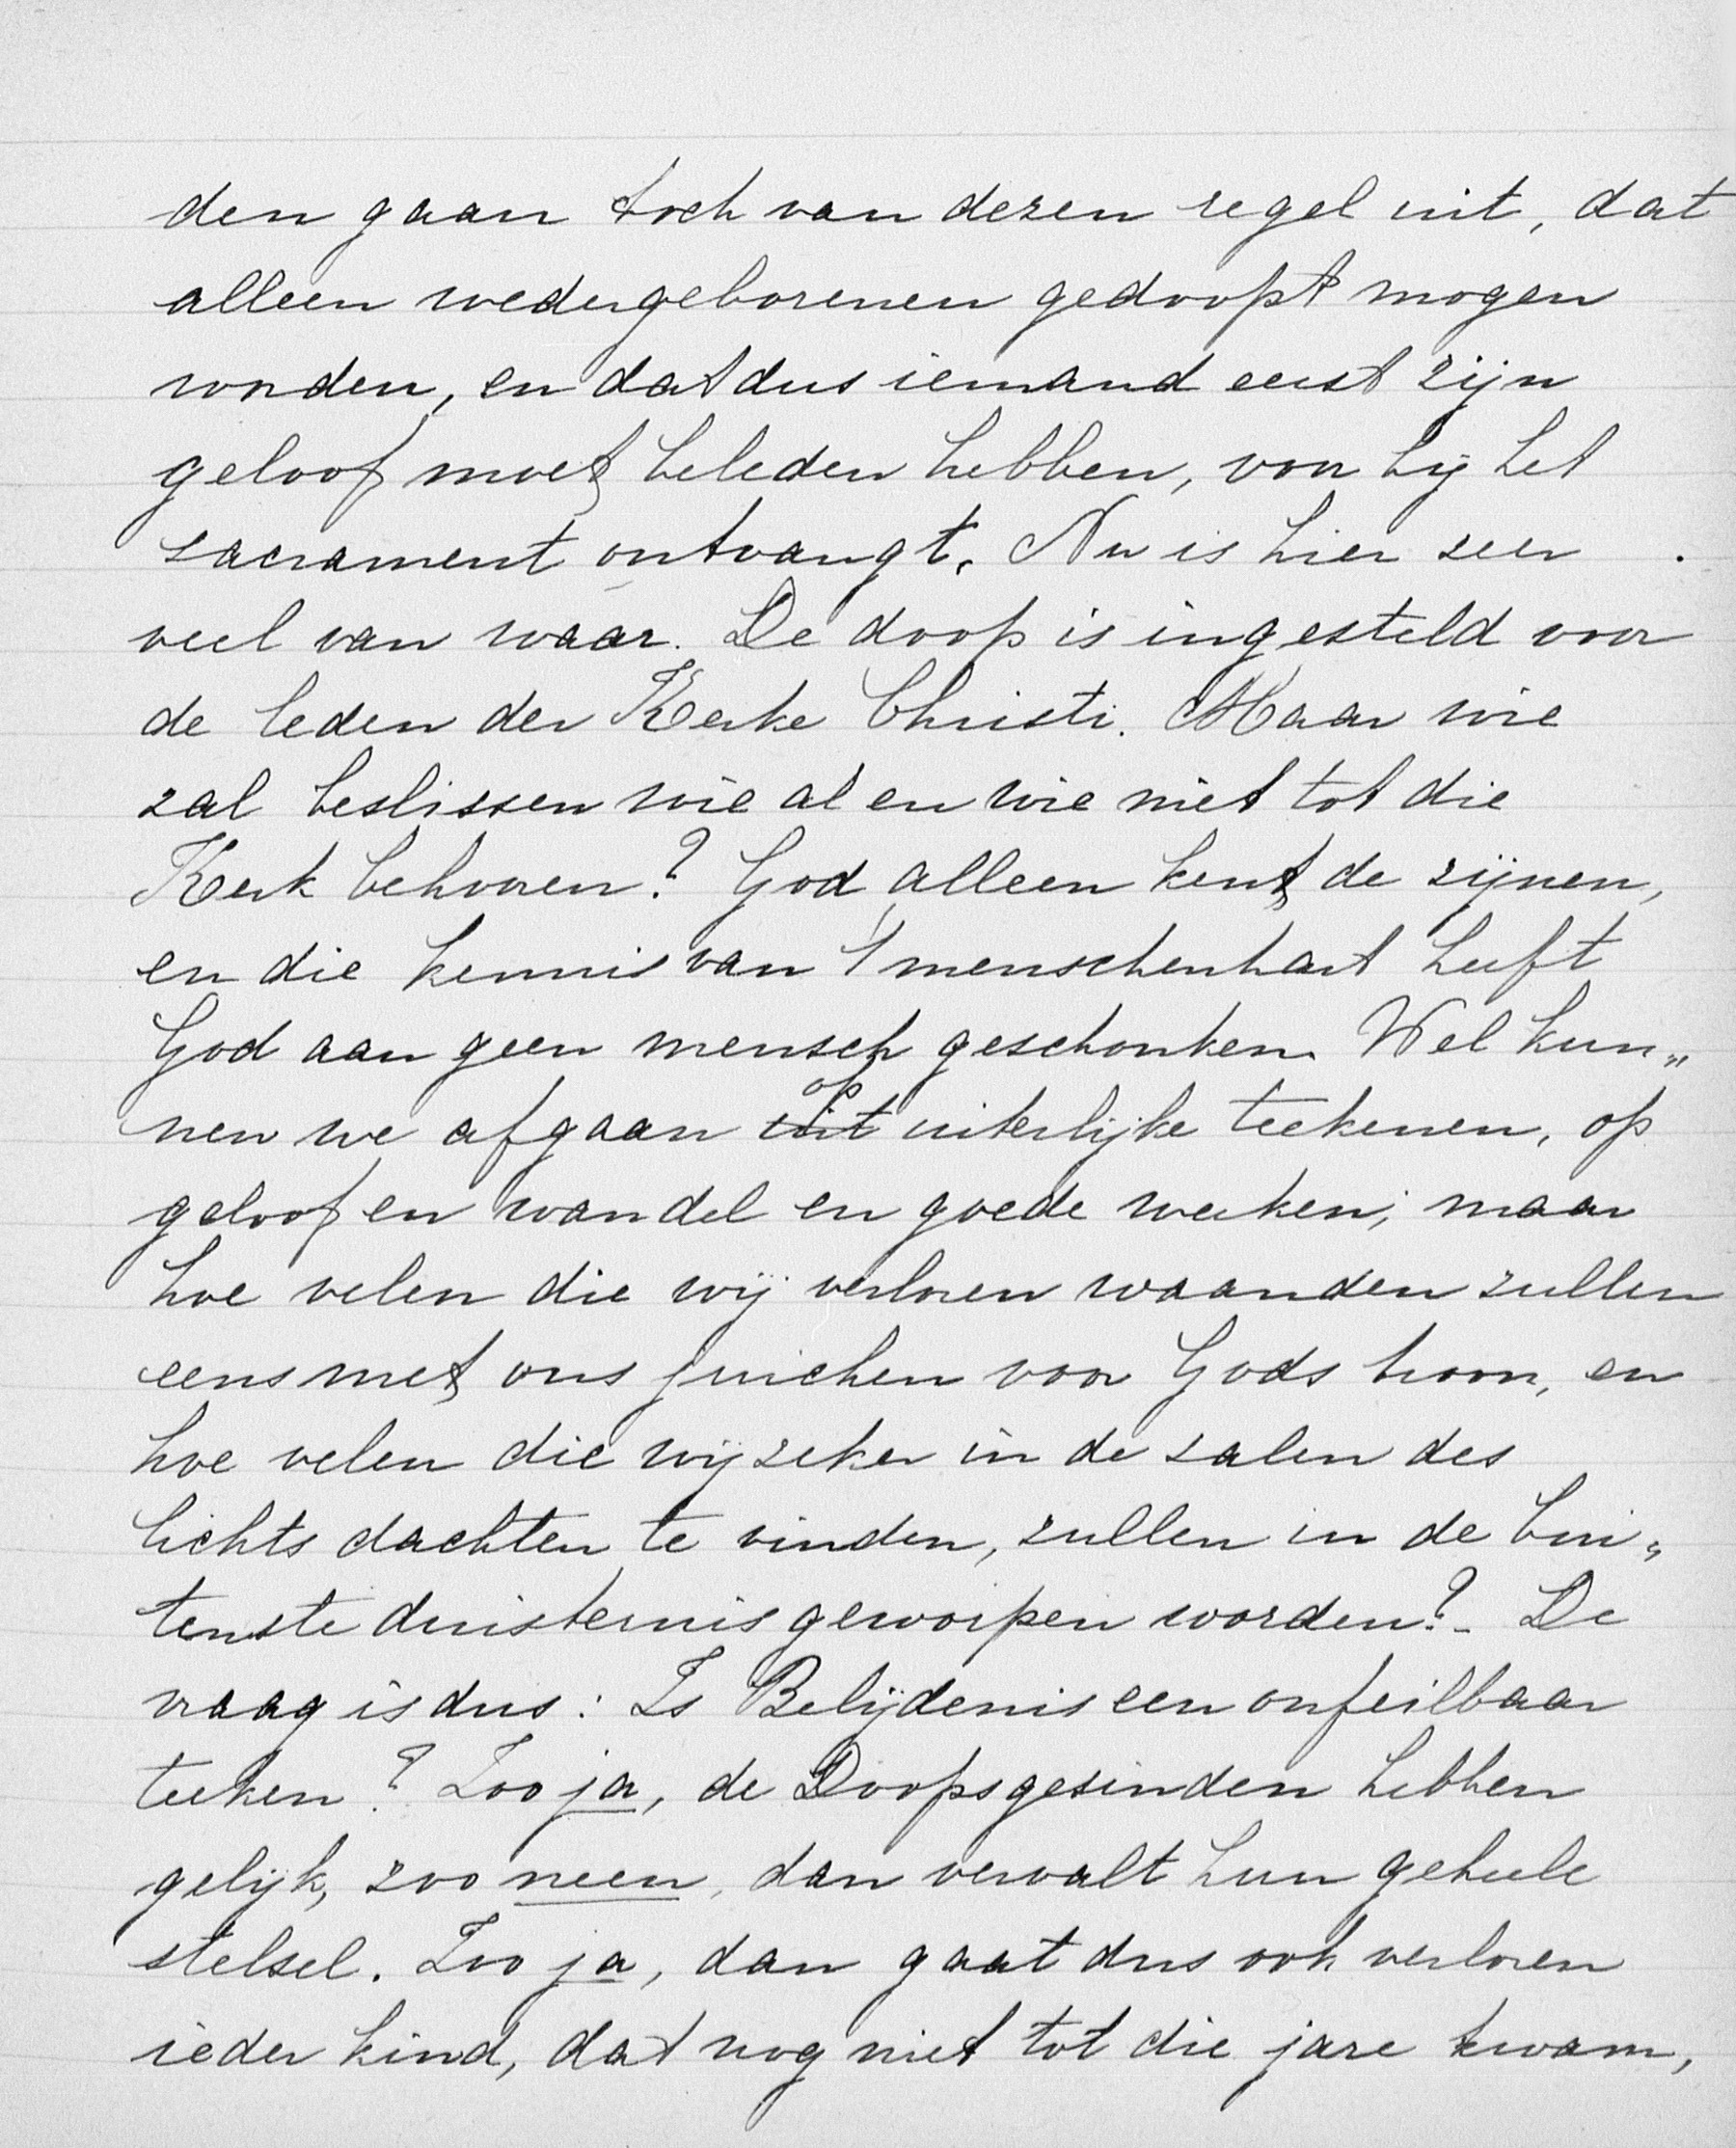 den gaan toch van dezen regel uit, dat
alleen wedergeborenen gedoopt mogen
worden, en dat dus iemand eerst zijn
geloof moet beleden hebben, voor hij het
sacrament ontvangt. Nu is hier zeer
veel van waar. De doop is ingesteld voor
de leden der Kerke Christi. Maar wie
zal beslissen wie al en wie niet tot die
Kerk behooren? God alleen kent de zijnen,
en die kennis van 't menschenhart heeft
God aan geen mensch geschonken. Wel kun„
nen we afgaan uit op uiterlijke teekenen, op
geloof en wandel en goede werken; maar
hoe velen die wij verloren waanden zullen
eens met ons juichen voor Gods troon, en
hoe velen die wij zeker in de zalen des
lichts dachten te vinden, zullen in de bui„
tenste duisternis geworpen worden?- De
vraag is dus: Is Belijdenis een onfeilbaar
teeken? Zoo ja, de Doopsgezinden hebben
gelijk, zoo neen, dan vervalt hun geheele
stelsel. Zoo ja, dan gaat dus ook verloren
ieder kind, dat nog niet tot die jare kwam,